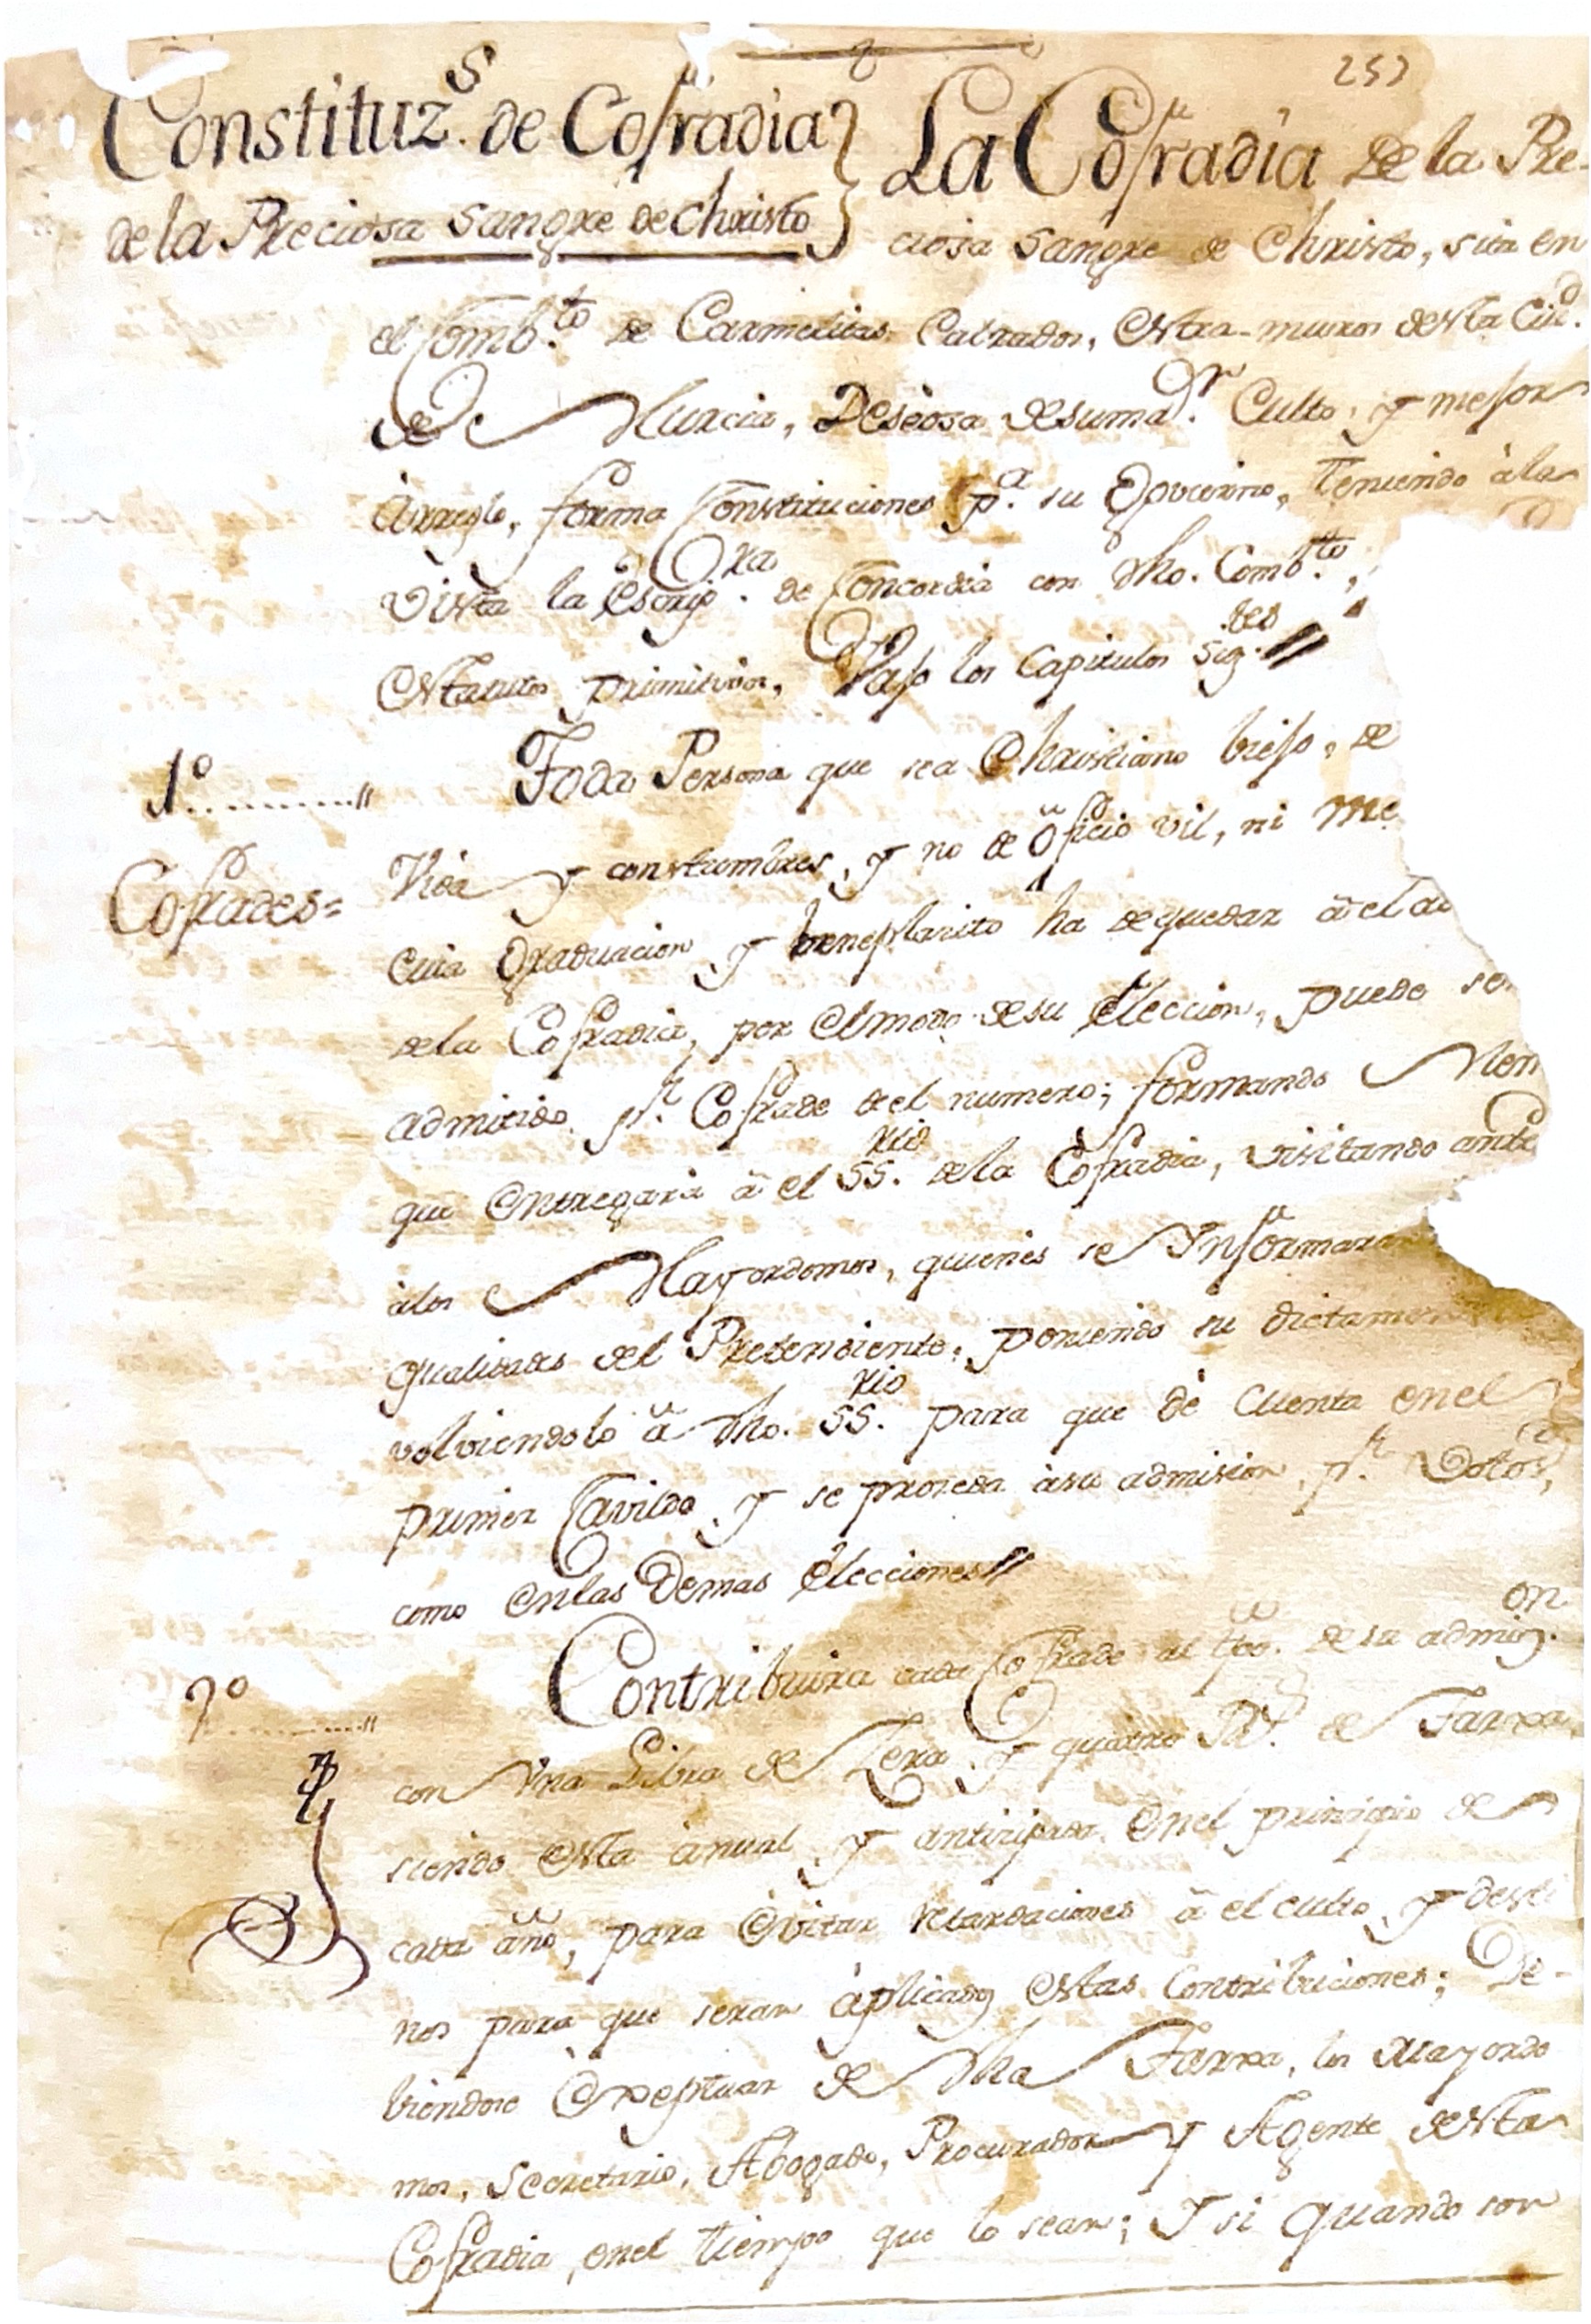 257
Constituz.s de Cofradia } La Cofradia de la Pre-
de la Preciosa Sangre de Christo } ciosa Sangre de Christo, sita en
el Comb.to de Carmelitas Calzados, Extra-muros desta Ciu.d
de Murcia, Deseosa de su ma.or Culto, y mejor
àrreglo, forma Constituciones p.a su Govierno, Teniendo à la
vista la Escrip.ra de Concordia con dho. Comb.to,
Estatutos primitivos, Vajo los Capitulos Sig.tes //
1.o ........ // Toda Persona que sea Christiano biejo, de
Cofrades= Vida y constumbres, y no de õficio vil, ni Me
cuia Graduacion y beneplacito ha de quedar â el a
de la Cofradia, por el modo de su Eleccion, puede se
admitido p.r Cofrade del numero; formando Mem
que Entregarà â el SS.rio de la Cofradia, visitando ante
à los Mayordomos, quienes se Informaran
qualidades del Pretendiente, poniendo su dictamen
volviendolo â dho. SS.rio para que dè cuenta en el
primer Cavildo, y se proceda à su admision, p.r Votos,
como en las Demas Elecciones //
2.o ........ // Contribuira cada Cofrade al tpo. de su admis.on
con Una Libra de Zera, y quatro R.s de Tarxa,
siendo esta ànual, y anticipada en el principio de
cada año, para Evitar retardaciones â el culto, y desti
nos para que seran àplicados Estas Contribuciones; De-
biendose Exeptuar de dha Tarxa, los Mayordo
mos, Secretario, Abogado, Procurador y Agente desta
Cofradia, en el tiempo que lo sean; Y si quando son